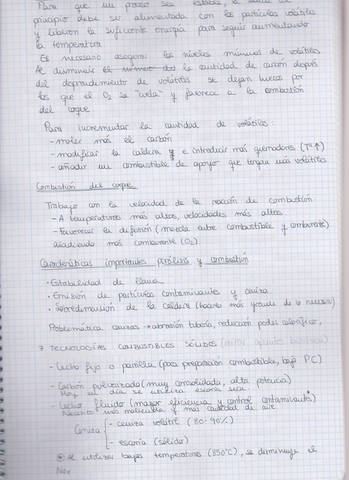 Para que un proceso sea estable, la
principio debe ser alimentada con las partículas volátiles
y liberan la suficiente energía para seguir aumentando
la temperatura
Es necesario asegurar los niveles mínimos de volátiles
Al disminuir la cantidad de carbón después
del desprendimiento de volátiles se dejan huecos por
los que el O2 se "cuela" y favorece a la combustión
del coque
Para incrementar la cantidad de volátiles:
- moler más el carbón
- modificar la caldera e introducir más quemadores (Tª↑)
- añadir un combustible de apoyo que tenga más volátiles
Combustión del coque
Trabajar con la velocidad de la reacción de combustión
- A temperaturas más altas, velocidades más altas
- Favorecer la difusión (mezcla entre combustible y comburente)
añadiendo más comburente (O2)
Características importantes pirólisis y combustión
· Estabilidad de llama
· Emisión de partículas contaminantes y ceniza
· Sobredimensión de la caldera (hacerla más grande de lo necesario)
Problemática cenizas → abrasión tubería, reducción poder calorífico,
7 TECNOLOGÍAS COMBUSTIBLES SÓLIDOS
- Lecho fijo o parrilla (poca preparación combustible, bajo PC)
- Carbón pulverizado (muy consolidada, alta potencia)
Hoy en día se utiliza escoria seca
- Lecho fluido (mayor eficiencia y control contaminante)
Necesito más molienda y más cantidad de aire
Ceniza - ceniza volátil (80-90%)
- escoria (sólido)
se utilizan bajas temperaturas (850°C), se disminuye el
Nox